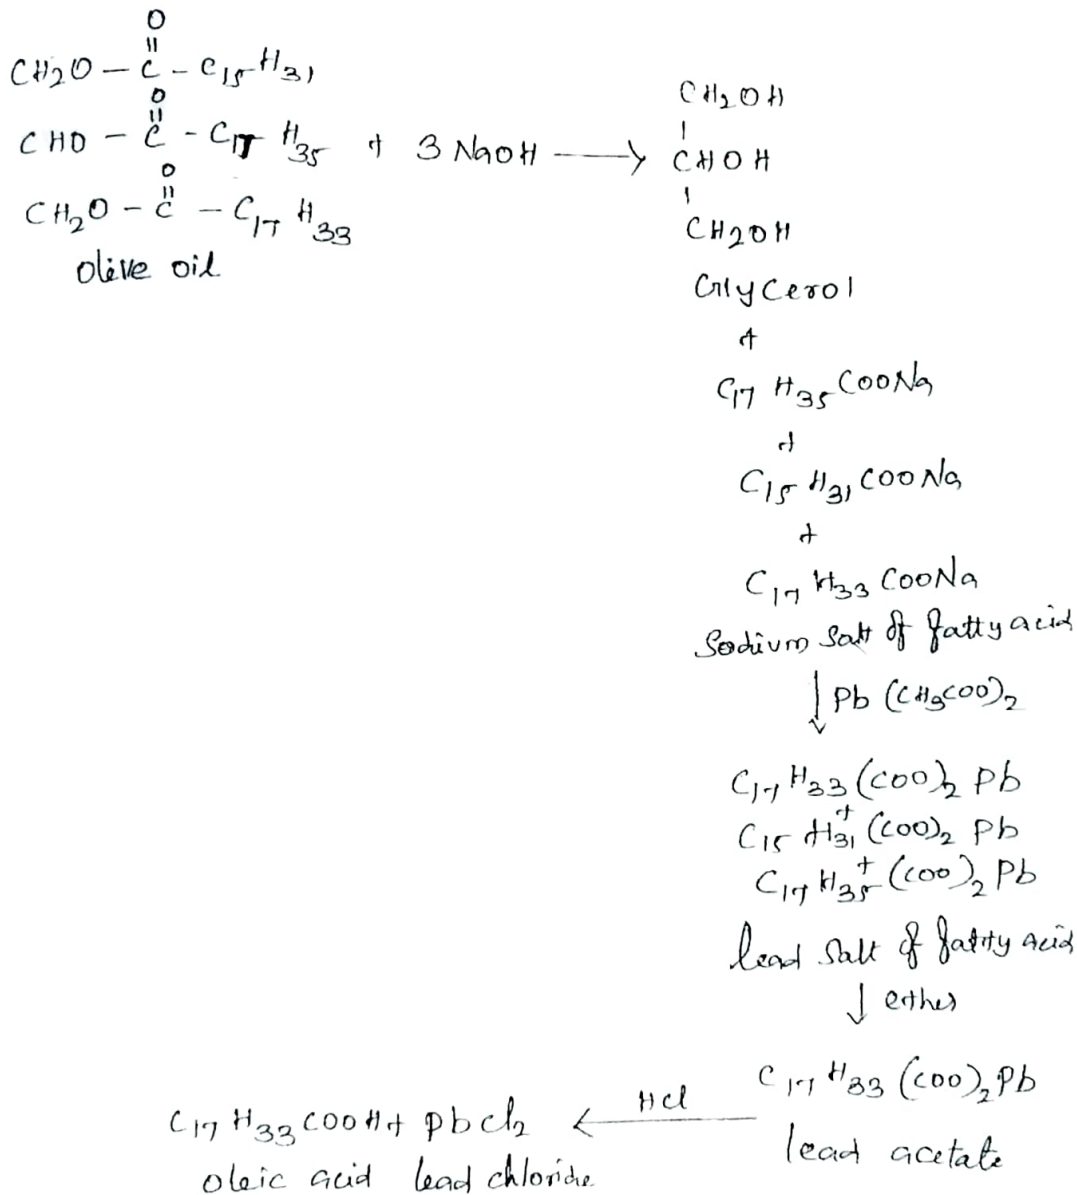 O
||
CH2O - C - C15H31
O
||
CHO - C - C17 H35 + 3 NaOH → CH2OH
|
CHOH
|
CH2OH
O
||
CH2O - C - C17 H33
olive oil
Glycerol
+
C17 H35 COONa
+
C15 H31 COONa
+
C17 H33 COONa
Sodium Salt of fatty acid
↓ Pb (CH3COO)2
C17 H33 (COO)2 Pb
+
C15 H31 (COO)2 Pb
+
C17 H35 (COO)2 Pb
lead Salt of fatty acid
↓ ether
C17 H33 (COO)2 Pb
lead acetate
← HCl
C17 H33 COOH + PbCl2
oleic acid lead chloride